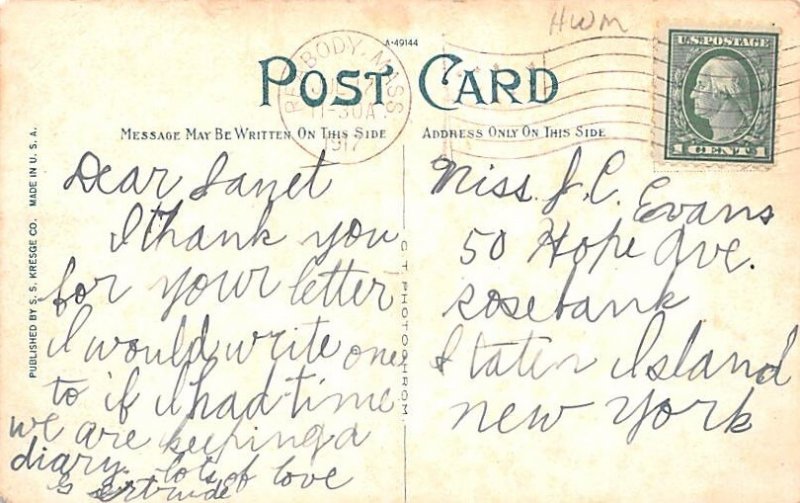 HWM
A-49144
POST CARD
PEABODY, MASS
11-30A
1917
U.S. POSTAGE
1 CENT 1
MESSAGE MAY BE WRITTEN ON THIS SIDE
ADDRESS ONLY ON THIS SIDE
PUBLISHED BY S. S. KRESGE CO. MADE IN U. S. A.
C T PHOTOCHROM
Dear Janet
I thank you
for your letter
I would write one
to if I had time
we are keeping a
diary. lots of love
Gertrude
Miss. J. C. Evans
50 Hope Ave.
Rosebank
Staten Island
New York